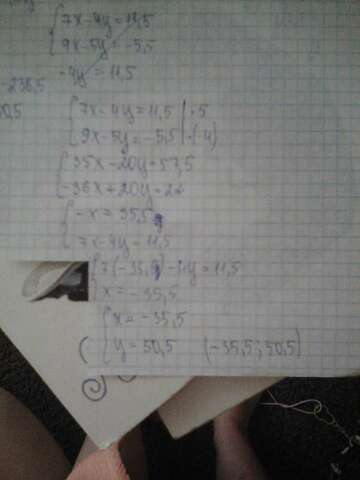 7x-4y=11,5
9x-5y=-5,5
-4y=11,5
-236,5
0,5
7x-4y=11,5 | ·5
9x-5y=-5,5 | ·(-4)
35x-20y=57,5
-36x+20y=22
-x=35,5
7x-4y=11,5
7(-35,5)-4y=11,5
x=-35,5
x=-35,5
y=50,5 (-35,5; 50,5)